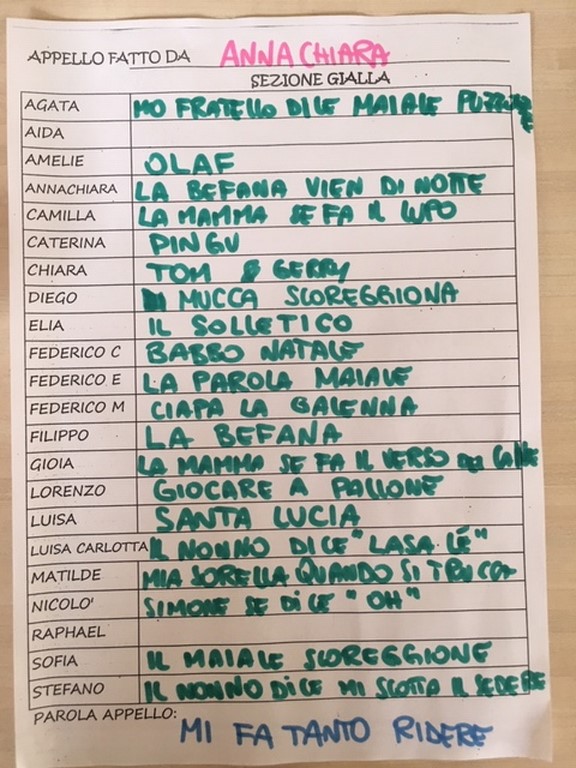 APPELLO FATTO DA ANNACHIARA
SEZIONE GIALLA
AGATA MO FRATELLO DICE MAIALE PUZZONE
AIDA
AMELIE OLAF
ANNACHIARA LA BEFANA VIEN DI NOTTE
CAMILLA LA MAMMA SE FA IL LUPO
CATERINA PINGU
CHIARA TOM E GERRY
DIEGO MUCCA SCOREGGIONA
ELIA IL SOLLETICO
FEDERICO C BABBO NATALE
FEDERICO E LA PAROLA MAIALE
FEDERICO M CIAPA LA GALENNA
FILIPPO LA BEFANA
GIOIA LA MAMMA SE FA IL VERSO DEL CANE
LORENZO GIOCARE A PALLONE
LUISA SANTA LUCIA
LUISA CARLOTTA IL NONNO DICE "LASA LÉ"
MATILDE MIA SORELLA QUANDO SI TRUCCA
NICOLO' SIMONE SE DICE "OH"
RAPHAEL
SOFIA IL MAIALE SCOREGGIONE
STEFANO IL NONNO DICE MI SCOTTA IL SEDERE
PAROLA APPELLO: MI FA TANTO RIDERE